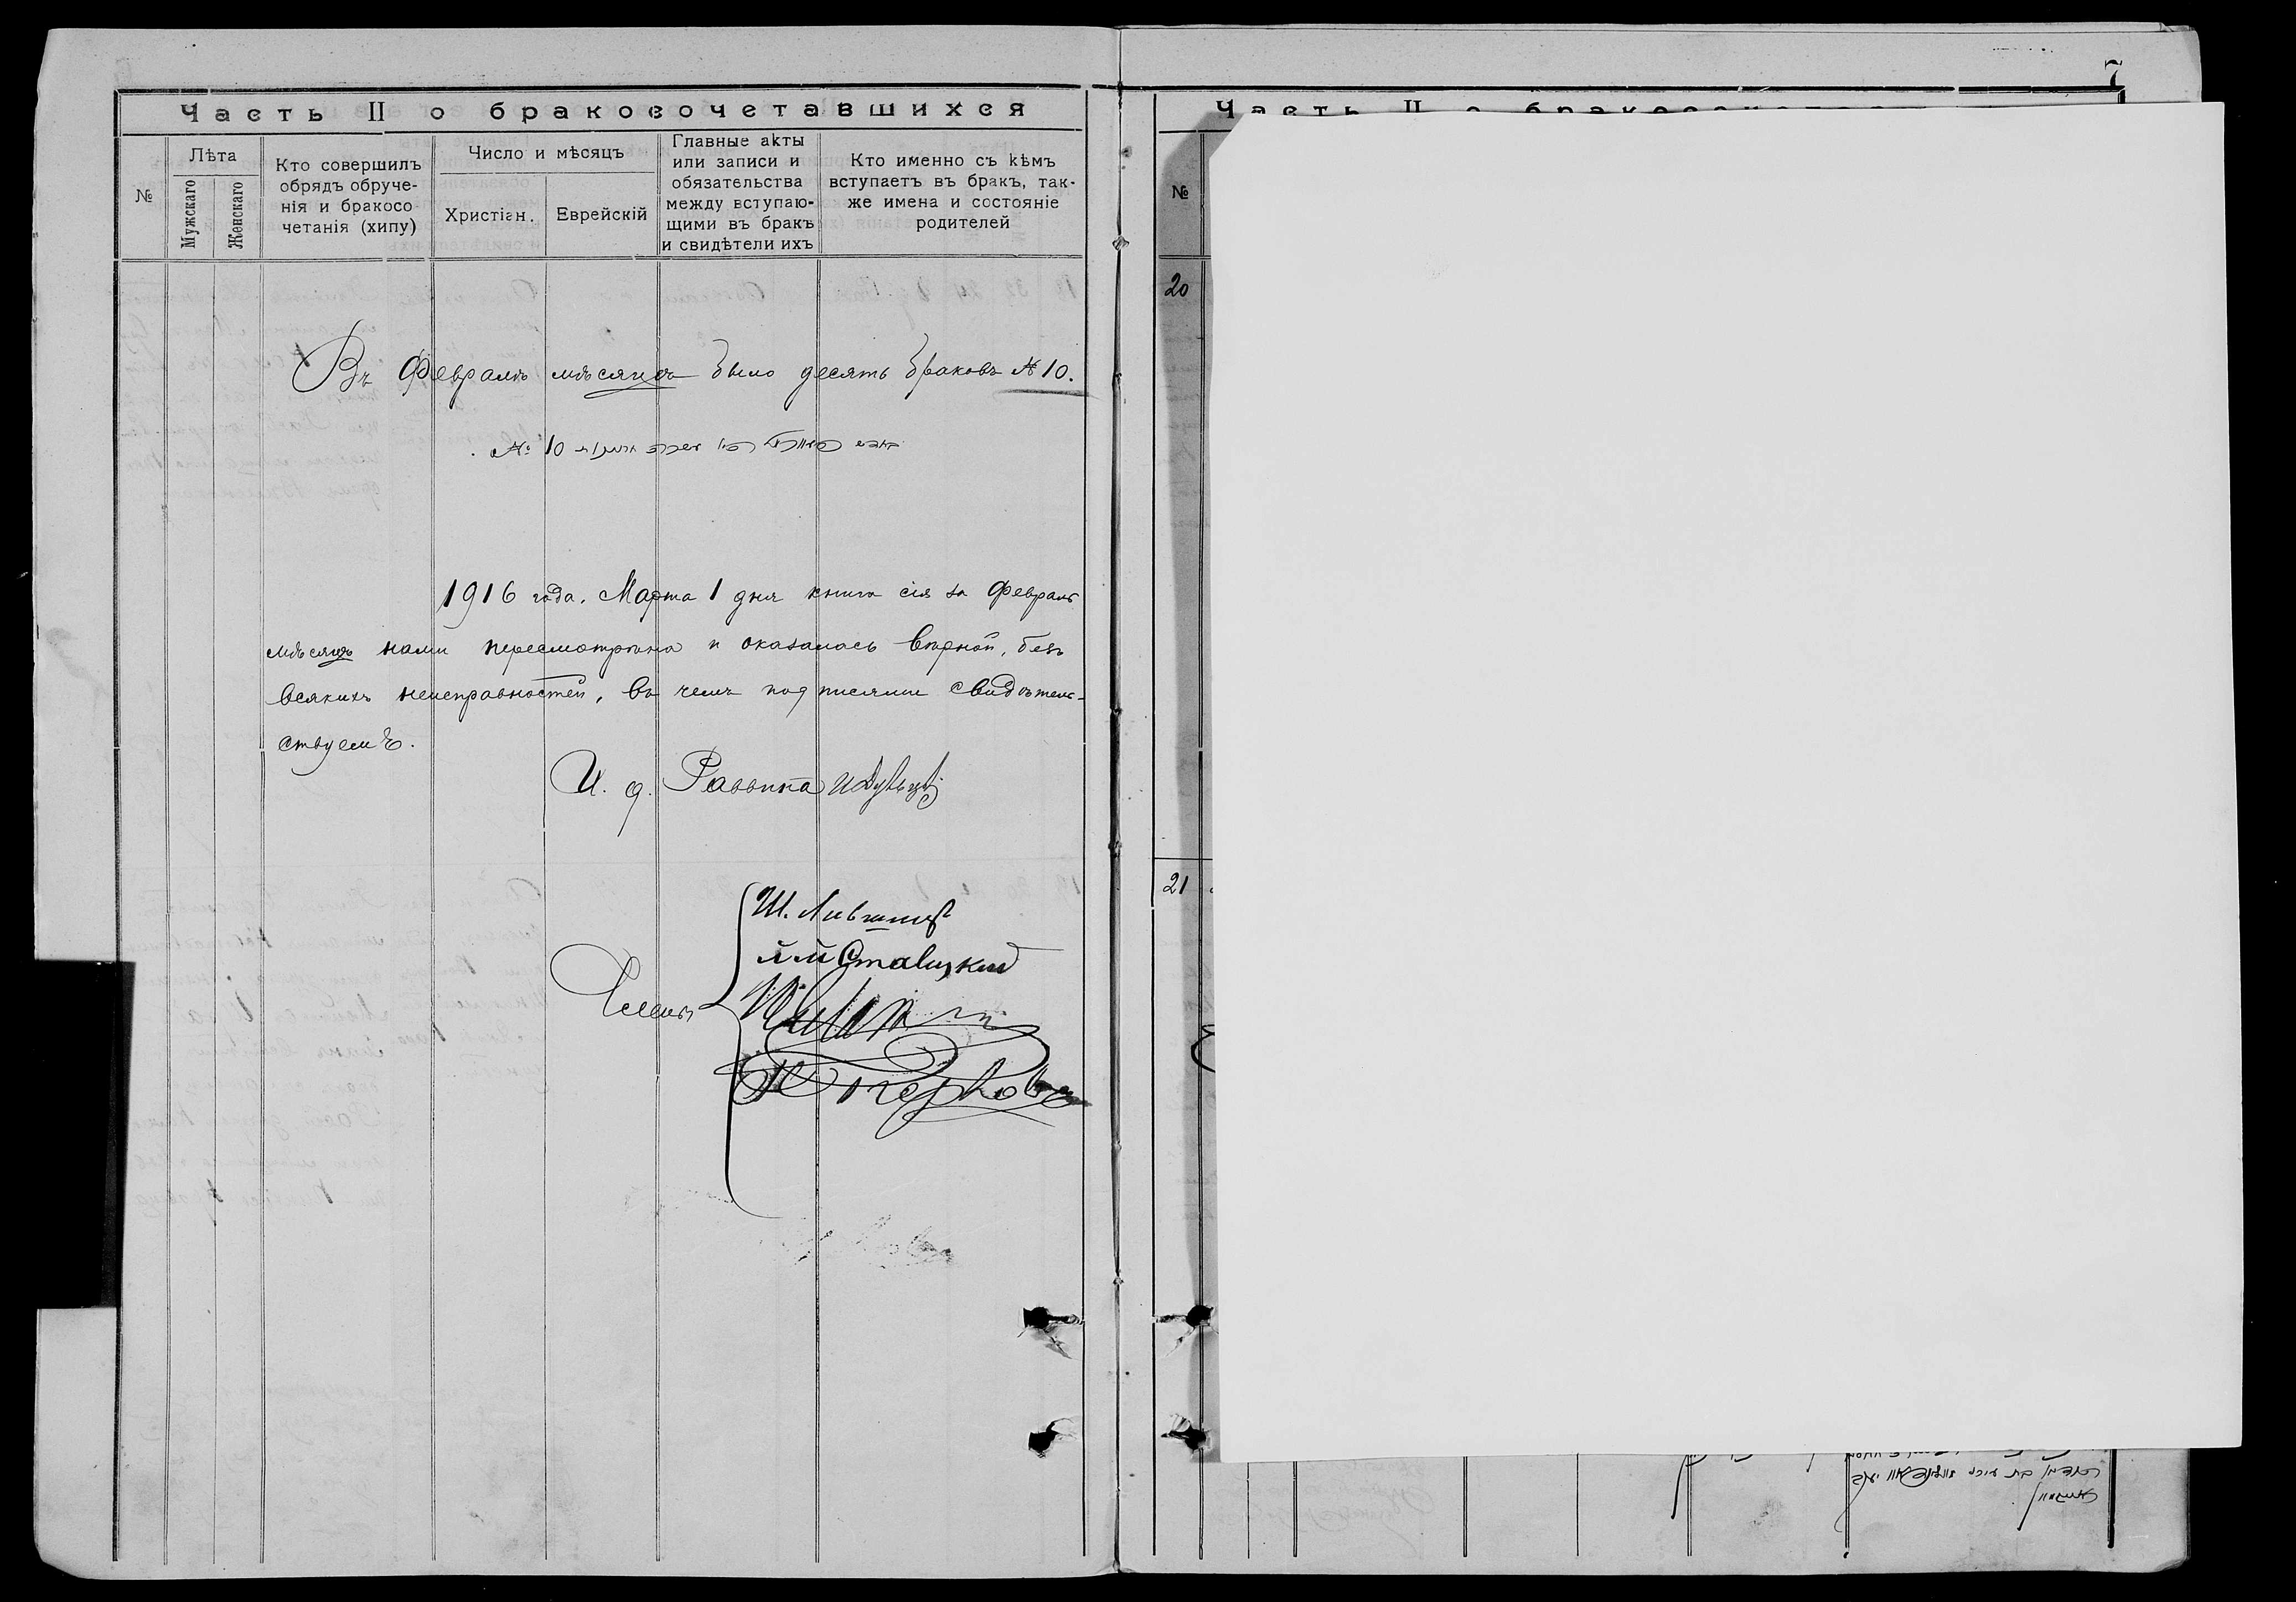 7
Часть II о бракосочетавшихся
№
Лѣта
Мужскаго
Женскаго
Кто совершилъ
обрядъ обруче-
нія и бракосо
четанія (хипу)
Число и мѣсяцъ
Христіан.
Еврейскій
Главные акты
или записи и
обязательства
между вступаю-
щими въ бракъ
и свидѣтели ихъ
Кто именно съ кѣмъ
вступаетъ въ бракъ, так-
же имена и состояніе
родителей
Въ Февралѣ мѣсяцѣ было десять браковъ № 10.
№ 10
1916 года. Марта 1 дня книга сія за Февраль
мѣсяцъ нами пересмотрѣна и оказалась вѣрной, безъ
всякихъ неисправностей, въ чемъ подписями свидѣтель-
ствуемъ.
И. д. Раввина
Члены
Ш. Лившиц
Ставицкий
Часть II
№
20
21